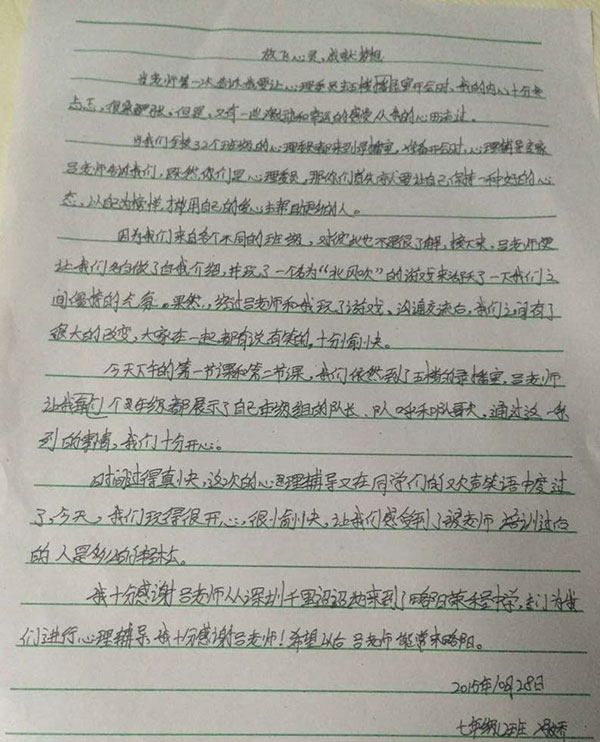 放飞心灵,成就梦想
当老师第一次告诉我要让心理委员去五楼播室开会时,我的内心十分忐
忑,很紧张。但是,又有一些激动和幸运的感受从我的心田流过。
当我们全校32个班级的心理委员都来到录播室,准备开会时,心理辅导专家
吕老师告诉我们,既然你们是心理委员,那你们首先就要让自己保持一种好的心
态,以自己为榜样,才能用自己的爱心去帮助更多的人。
因为我们来自各个不同的班级,对彼此也不是很了解,接下来,吕老师便
让我们各自做了自我介绍,并玩了一个名为“北风吹”的游戏来活跃了一下我们之
间僵持的气氛。果然,经过吕老师和我玩了游戏、沟通交流后,我们之间有了
很大的改变,大家在一起都有说有笑的,十分愉快。
今天下午的第一节课和第二节课,我们依然到了五楼的录播室,吕老师
让我们每个年级都展示了自己年级组的队长、队呼和队歌,通过这一系
列的事情,我们十分开心。
时间过得真快,这次的心理辅导又在同学们的欢声笑语中度过
了,今天,我们玩得很开心,很愉快,让我们感受到了被老师培训过后
的人是多么的轻松。
我十分感谢吕老师从深圳千里迢迢地来到了略阳荣程中学,专门为我
们进行心理辅导,我十分感谢吕老师!希望以后吕老师能常来略阳。
2015年10月28日
七年级12班